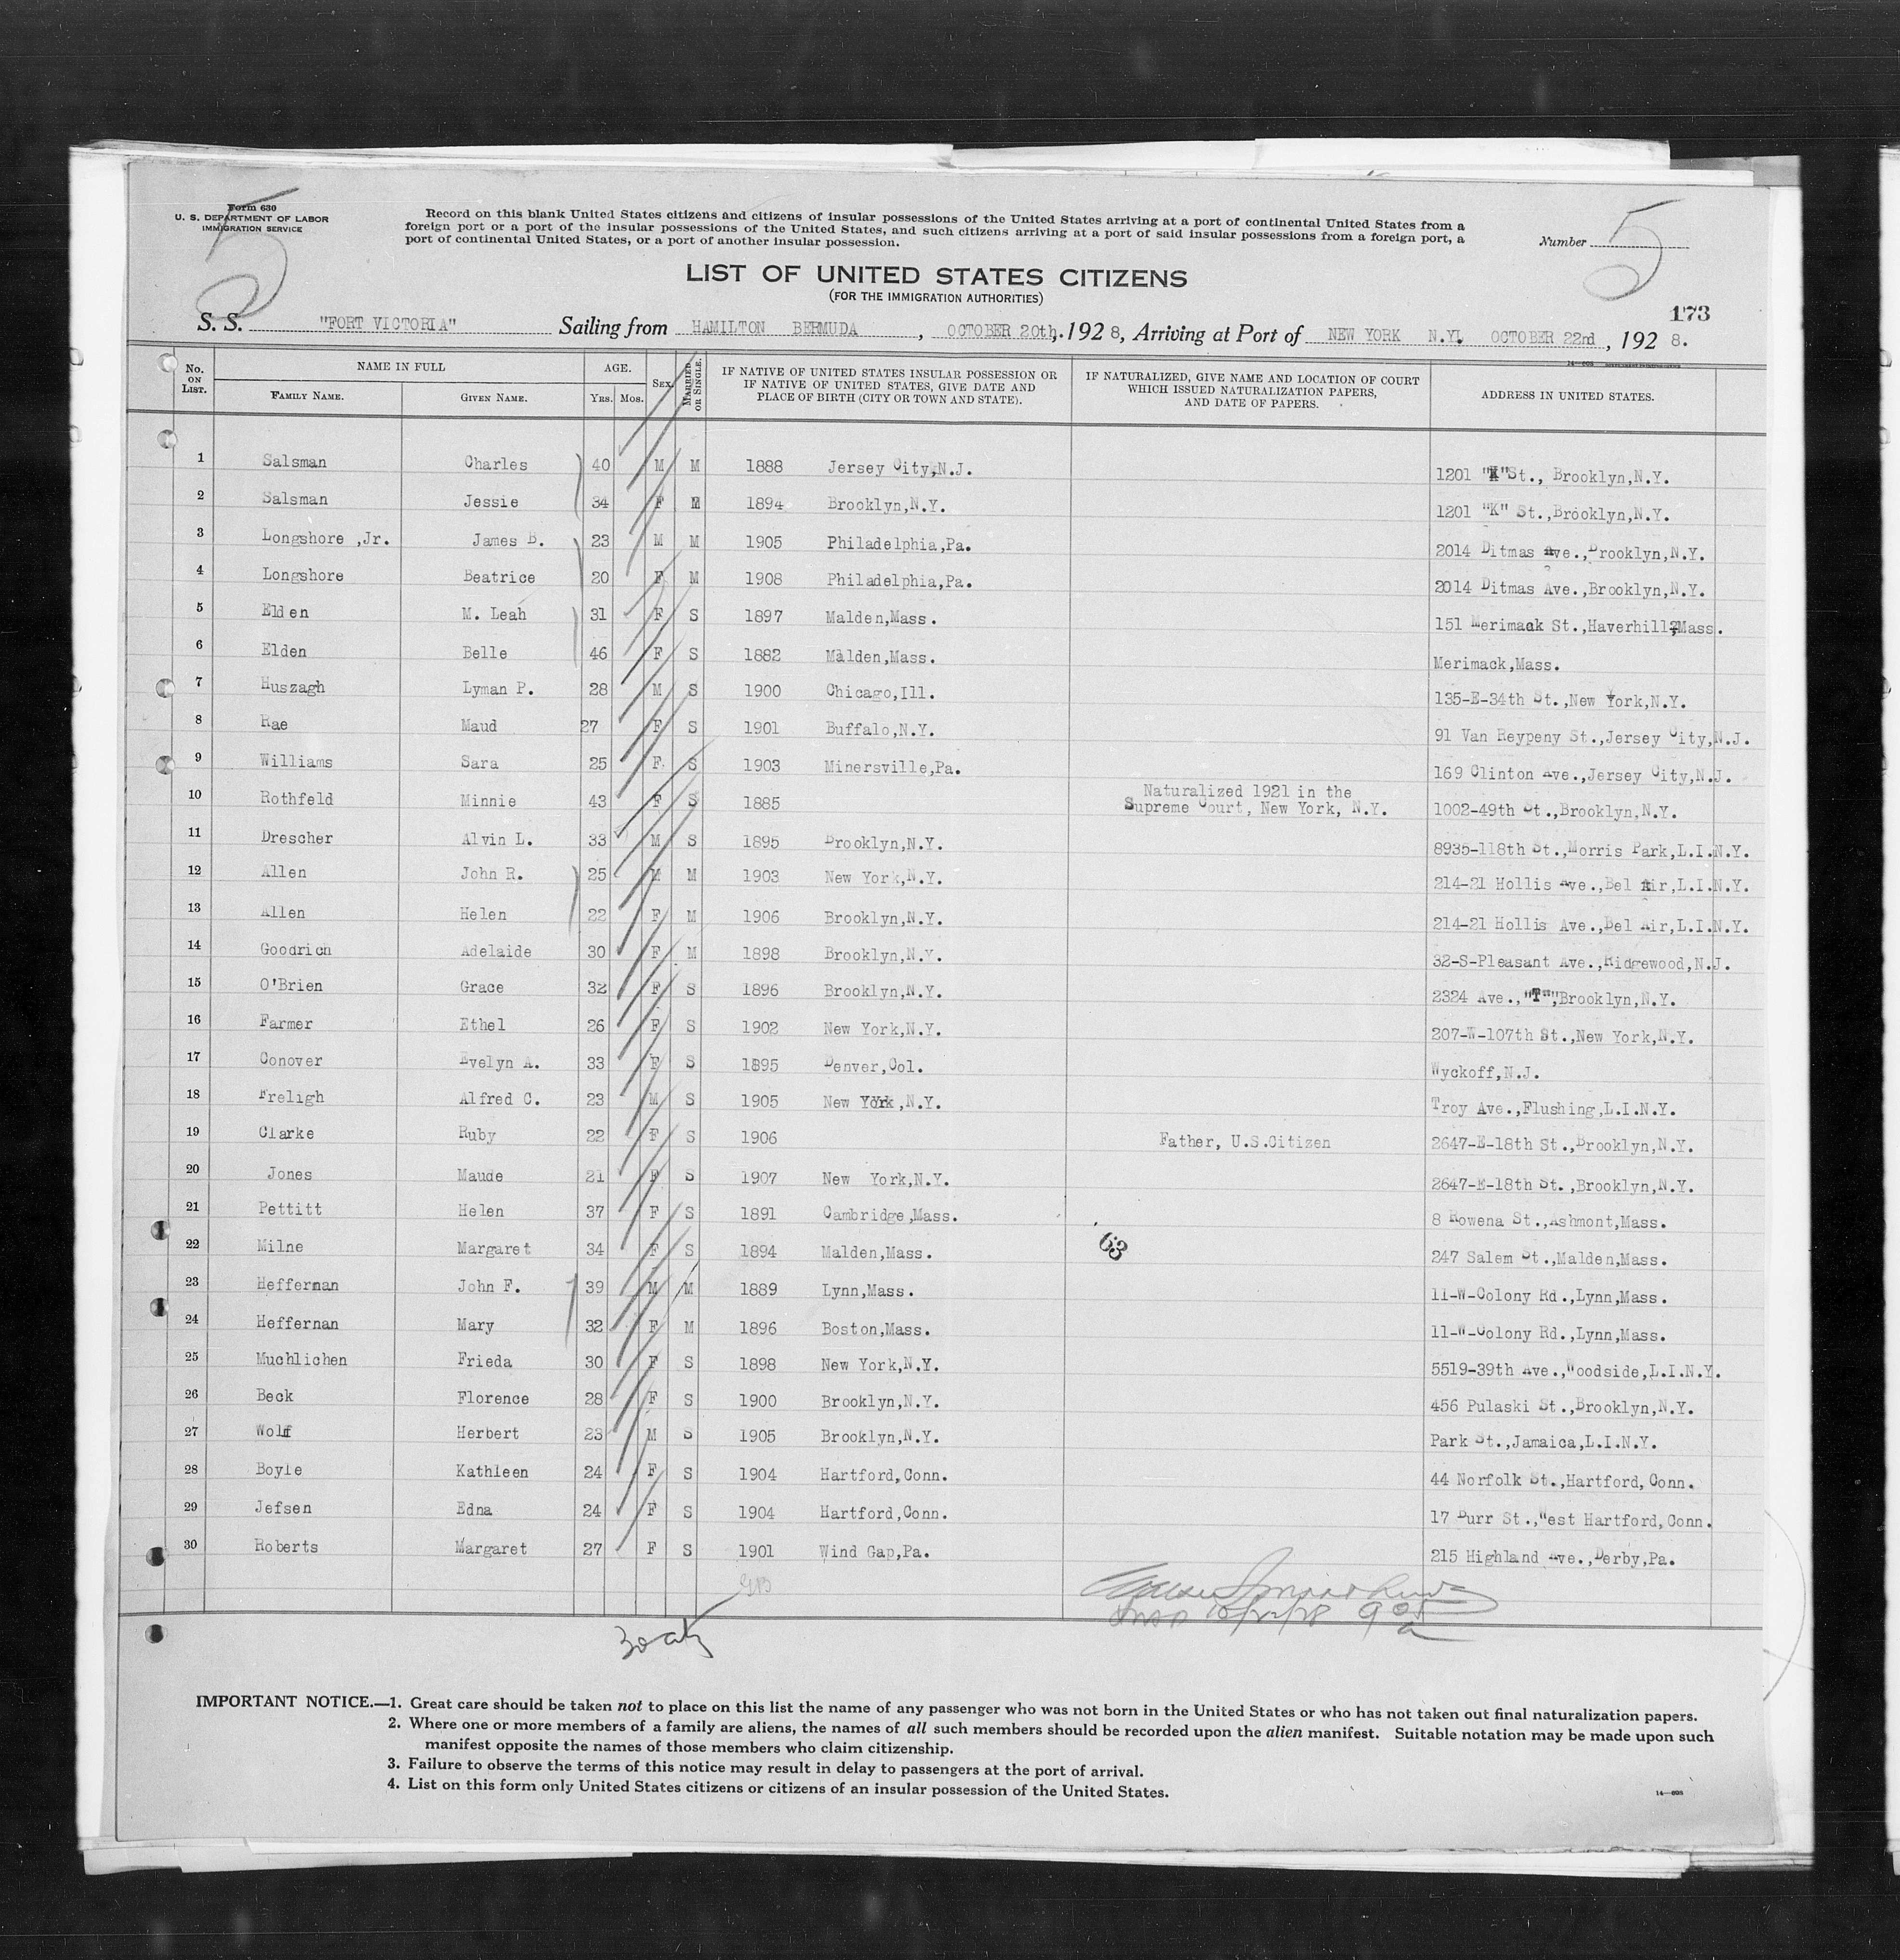 Form 630
U. S. DEPARTMENT OF LABOR
IMMIGRATION SERVICE
5
Record on this blank United States citizens and citizens of insular possessions of the United States arriving at a port of continental United States from a
foreign port or a port of the insular possessions of the United States, and such citizens arriving at a port of said insular possessions from a foreign port, a
port of continental United States, or a port of another insular possession.
Number 5
LIST OF UNITED STATES CITIZENS
(FOR THE IMMIGRATION AUTHORITIES)
173
S. S. "FORT VICTORIA" Sailing from HAMILTON BERMUDA, OCTOBER 20th, 1928, Arriving at Port of NEW YORK N.Y. OCTOBER 22nd, 1928.
No. ON LIST. NAME IN FULL FAMILY NAME. GIVEN NAME. AGE. YRS. MOS. SEX. MARRIED OR SINGLE. IF NATIVE OF UNITED STATES INSULAR POSSESSION OR IF NATIVE OF UNITED STATES, GIVE DATE AND PLACE OF BIRTH (CITY OR TOWN AND STATE). IF NATURALIZED, GIVE NAME AND LOCATION OF COURT WHICH ISSUED NATURALIZATION PAPERS, AND DATE OF PAPERS. ADDRESS IN UNITED STATES.
1 Salsman Charles 40 M M 1888 Jersey City,N.J. 1201 "K"St., Brooklyn,N.Y.
2 Salsman Jessie 34 F M 1894 Brooklyn,N.Y. 1201 "K" St.,Brooklyn,N.Y.
3 Longshore ,Jr. James B. 23 M M 1905 Philadelphia,Pa. 2014 Ditmas Ave.,Brooklyn,N.Y.
4 Longshore Beatrice 20 F M 1908 Philadelphia,Pa. 2014 Ditmas Ave.,Brooklyn,N.Y.
5 Elden M. Leah 31 F S 1897 Malden,Mass. 151 Merimack St.,Haverhill,Mass.
6 Elden Belle 46 F S 1882 Malden,Mass. Merimack,Mass.
7 Huszagh Lyman P. 28 M S 1900 Chicago,Ill. 135-E-34th St.,New York,N.Y.
8 Rae Maud 27 F S 1901 Buffalo,N.Y. 91 Van Reypeny St.,Jersey City,N.J.
9 Williams Sara 25 F S 1903 Minersville,Pa. 169 Clinton Ave.,Jersey City,N.J.
10 Rothfeld Minnie 43 F S 1885 Naturalized 1921 in the Supreme Court, New York, N.Y. 1002-49th St.,Brooklyn,N.Y.
11 Drescher Alvin L. 33 M S 1895 Brooklyn,N.Y. 8935-118th St.,Morris Park,L.I.N.Y.
12 Allen John R. 25 M M 1903 New York,N.Y. 214-21 Hollis Ave.,Bel Air,L.I.N.Y.
13 Allen Helen 22 F M 1906 Brooklyn,N.Y. 214-21 Hollis Ave.,Bel Air,L.I.N.Y.
14 Goodrich Adelaide 30 F M 1898 Brooklyn,N.Y. 32-S-Pleasant Ave.,Ridgewood,N.J.
15 O'Brien Grace 32 F S 1896 Brooklyn,N.Y. 2324 Ave.,"T",Brooklyn,N.Y.
16 Farmer Ethel 26 F S 1902 New York,N.Y. 207-W-107th St.,New York,N.Y.
17 Conover Evelyn A. 33 F S 1895 Denver,Col. Wyckoff,N.J.
18 Freligh Alfred C. 23 M S 1905 New York,N.Y. Troy Ave.,Flushing,L.I.N.Y.
19 Clarke Ruby 22 F S 1906 Father, U.S.Citizen 2647-E-18th St.,Brooklyn,N.Y.
20 Jones Maude 21 F S 1907 New York,N.Y. 2647-E-18th St.,Brooklyn,N.Y.
21 Pettitt Helen 37 F S 1891 Cambridge,Mass. 8 Rowena St.,Ashmont,Mass.
22 Milne Margaret 34 F S 1894 Malden,Mass. 63 247 Salem St.,Malden,Mass.
23 Heffernan John F. 39 M M 1889 Lynn,Mass. 11-W-Colony Rd.,Lynn,Mass.
24 Heffernan Mary 32 F M 1896 Boston,Mass. 11-W-Colony Rd.,Lynn,Mass.
25 Muchlichen Frieda 30 F S 1898 New York,N.Y. 5519-39th Ave.,Woodside,L.I.N.Y.
26 Beck Florence 28 F S 1900 Brooklyn,N.Y. 456 Pulaski St.,Brooklyn,N.Y.
27 Wolf Herbert 23 M S 1905 Brooklyn,N.Y. Park St.,Jamaica,L.I.N.Y.
28 Boyle Kathleen 24 F S 1904 Hartford,Conn. 44 Norfolk St.,Hartford,Conn.
29 Jefsen Edna 24 F S 1904 Hartford,Conn. 17 Burr St.,West Hartford,Conn.
30 Roberts Margaret 27 F S 1901 Wind Gap,Pa. 215 Highland Ave.,Derby,Pa.
10/22/28
IMPORTANT NOTICE.—1. Great care should be taken not to place on this list the name of any passenger who was not born in the United States or who has not taken out final naturalization papers.
2. Where one or more members of a family are aliens, the names of all such members should be recorded upon the alien manifest. Suitable notation may be made upon such
manifest opposite the names of those members who claim citizenship.
3. Failure to observe the terms of this notice may result in delay to passengers at the port of arrival.
4. List on this form only United States citizens or citizens of an insular possession of the United States.
14—608